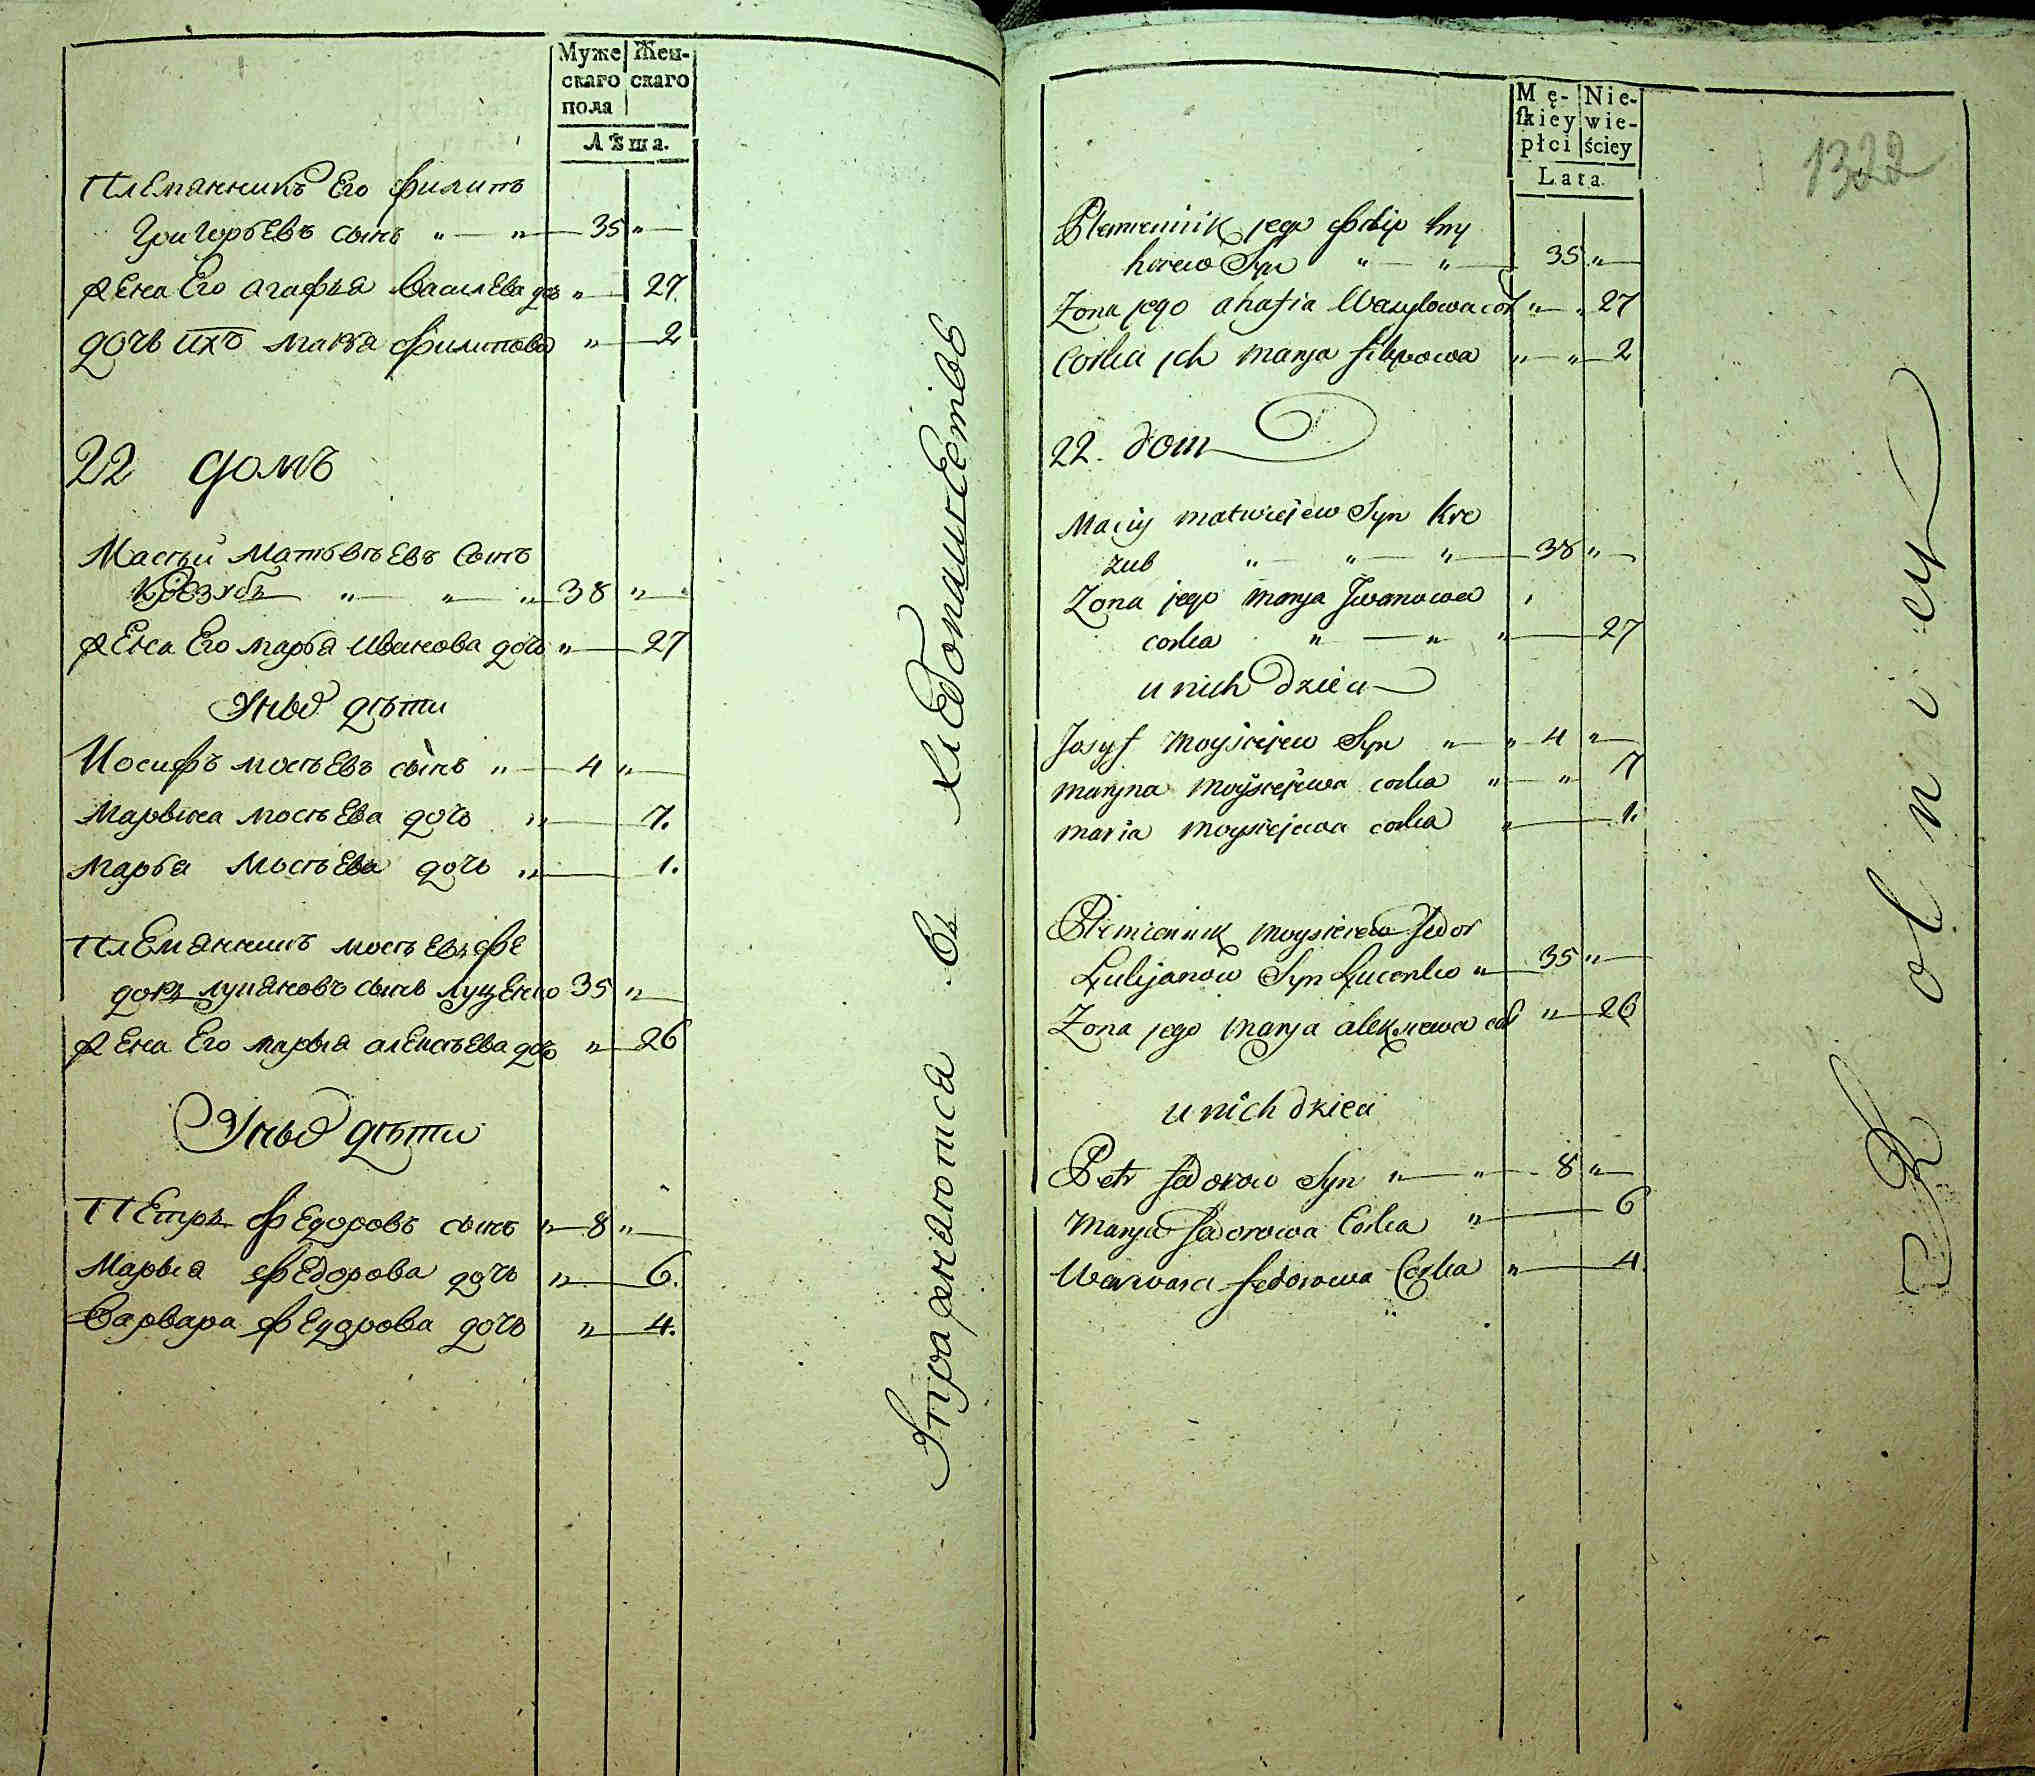 Муже Жен-
скаго скаго
пола
Лѣта.
Племянникъ Его Филипъ
Григорьевъ сынъ „ — „ — 35 „ —
жена Его агафья Васильева дочь „ — 27
дочь ихъ Марья Филипова „ — 2
22 домъ
Мастѣй Матвѣевъ Сынъ
Кревзубъ „ — „ — „ 38 „ —
жена Его марья иванова дочь „ — 27
Унихъ дѣти
Иосифъ мостѣевъ сынъ „ — 4 „ —
Марвина мостѣева дочь „ — 7.
Марья Мостѣева дочь „ — 1.
Племянникъ мостѣевъ Фе
доръ лупяновъ сынъ луценко 35 „ —
жена Его марья алексѣева дочь „ — 26
Унихъ дѣти
Петръ Федоровъ сынъ „ — 8 „ —
Марья Федорова дочь „ — 6.
Варвара Федорова дочь „ — 4.
Упражняются въ хлебопашествѣ
Mę- Nie-
ſkiey wie-
płci ściey
Lata.
1322
Plemiennik jego Filip hry
horew Syn „ — „ — 35 „ —
Zona jego ahafia Wasylowa cor „ — „ 27
Corka ich marya filipowa „ — „ — 2
22. dom
Maciy matwiejew Syn Kre
zub „ — „ — „ — 38 „ —
Zona jego marya Jwanowa
corka „ — „ „ — 27
u nich dzieci
Josyf moysiejew Syn „ — „ 4 „ —
maryna moysiejewa corka „ — „ — 7
maria moysiejewa corka „ — 1.
Plemiennik moysiejew fedor
Lulijanow Syn Lucenko „ — 35 „ —
Zona jego marya alexiewa cor „ — 26
u nich dzieci
Petr fedorow Syn „ — „ — 8 „ —
Marya fedorowa Corka „ — 6
Warwara fedorowa Corka „ — 4.
Rolnicy